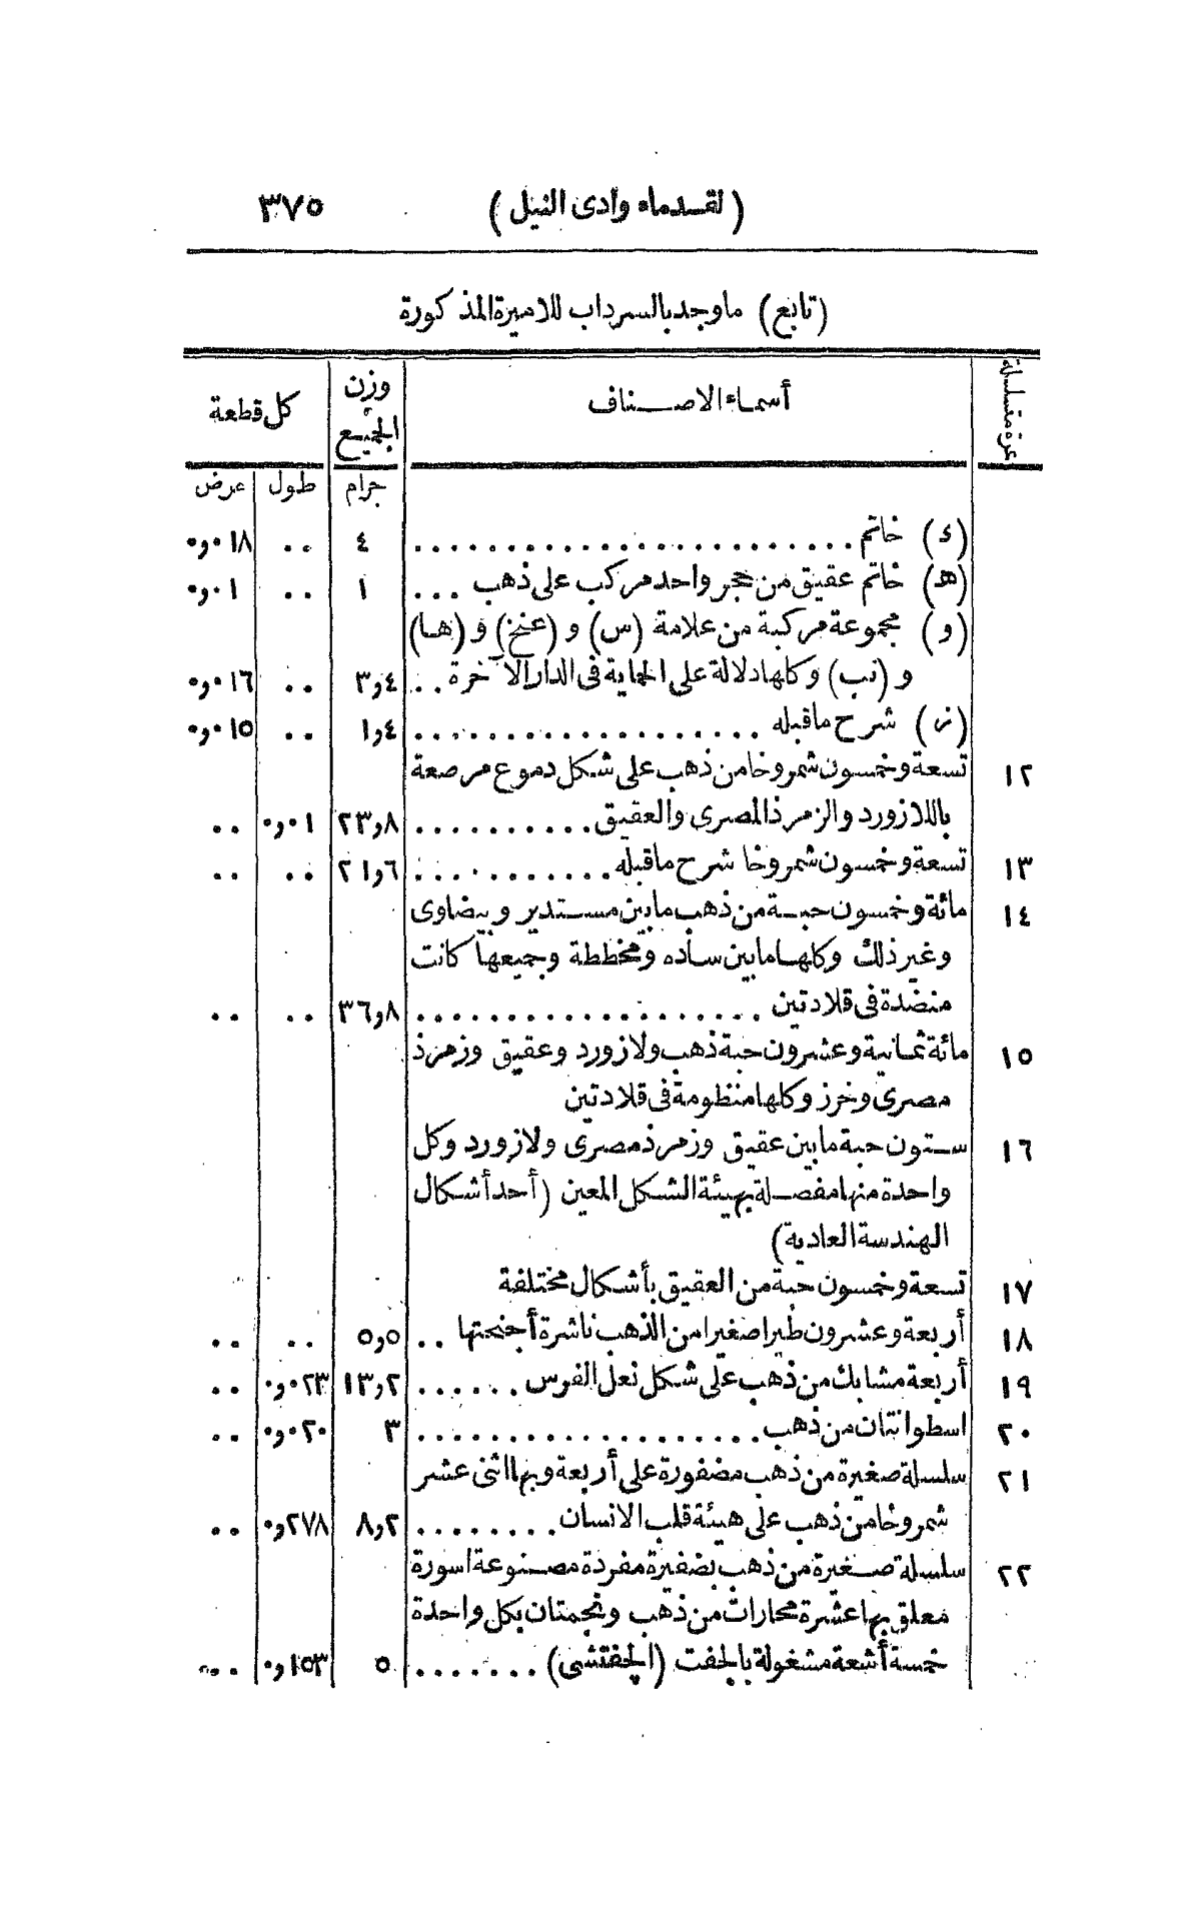 (لقدماء وادى النيل) ٣٧٥
(تابع) ماوجد بالسرداب للاميرة المذكورة
نمرة متسلسلة | أسماء الاصناف | وزن الجميع | كل قطعة
جرام | طول | عرض
(ء) خاتم ........ ٤ .. ٠١٨و٠
(هـ) خاتم عقيق من حجر واحد مركب على ذهب ... ١ .. ٠١و٠
(و) مجموعة مركبة من علامة (س) و (عنخ) و (هـا)
و (نب) وكلها دلالة على الحماية فى الدار الآخرة .. ٤و٣ .. ٠١٦و٠
(ز) شرح ماقبله ........ ٤و١ .. ٠١٥و٠
١٢ تسعة وخمسون شمروخا من ذهب على شكل دموع مرصعة
باللازورد والزمرذ المصرى والعقيق ........ ٨و٢٣ ٠١و٠ ..
١٣ تسعة وخمسون شمروخا شرح ماقبله ........ ٦و٢١ .. ..
١٤ مائة وخمسون حبة من ذهب مابين مستدير وبيضاوى
وغير ذلك وكلها مابين ساده ومخططة وجميعها كانت
منضدة فى قلادتين ........ ٨و٣٦ .. ..
١٥ مائة ثمانية وعشرون حبة ذهب ولازورد وعقيق وزمرذ
مصرى وخرز وكلها منظومة فى قلادتين
١٦ ستون حبة مابين عقيق وزمرذ مصرى ولازورد وكل
واحدة منها مفصلة بهيئة الشكل المعين (أحد أشكال
الهندسة العادية)
١٧ تسعة وخمسون حبة من العقيق بأشكال مختلفة
١٨ أربعة وعشرون طيرا صغيرا من الذهب ناشرة أجنحتها .. ٥و٥ .. ..
١٩ أربعة مشابك من ذهب على شكل نعل الفرس ...... ٢و١٣ ٠٢٣و٠ ..
٢٠ اسطوانتان من ذهب ........ ٣ ٠٢٠و٠ ..
٢١ سلسلة صغيرة من ذهب مضفورة على أربعة وبها اثنى عشر
شمروخا من ذهب على هيئة قلب الانسان ........ ٢و٨ ٢٧٨و٠ ..
٢٢ سلسلة صغيرة من ذهب بضفيرة مفردة مصنوعة اسورة
معلق بها عشرة محارات من ذهب ونجمتان بكل واحدة
خمسة أشعة مشغولة بالجفت (الجفتشى) ....... ٥ ١٥٣و٠ ..